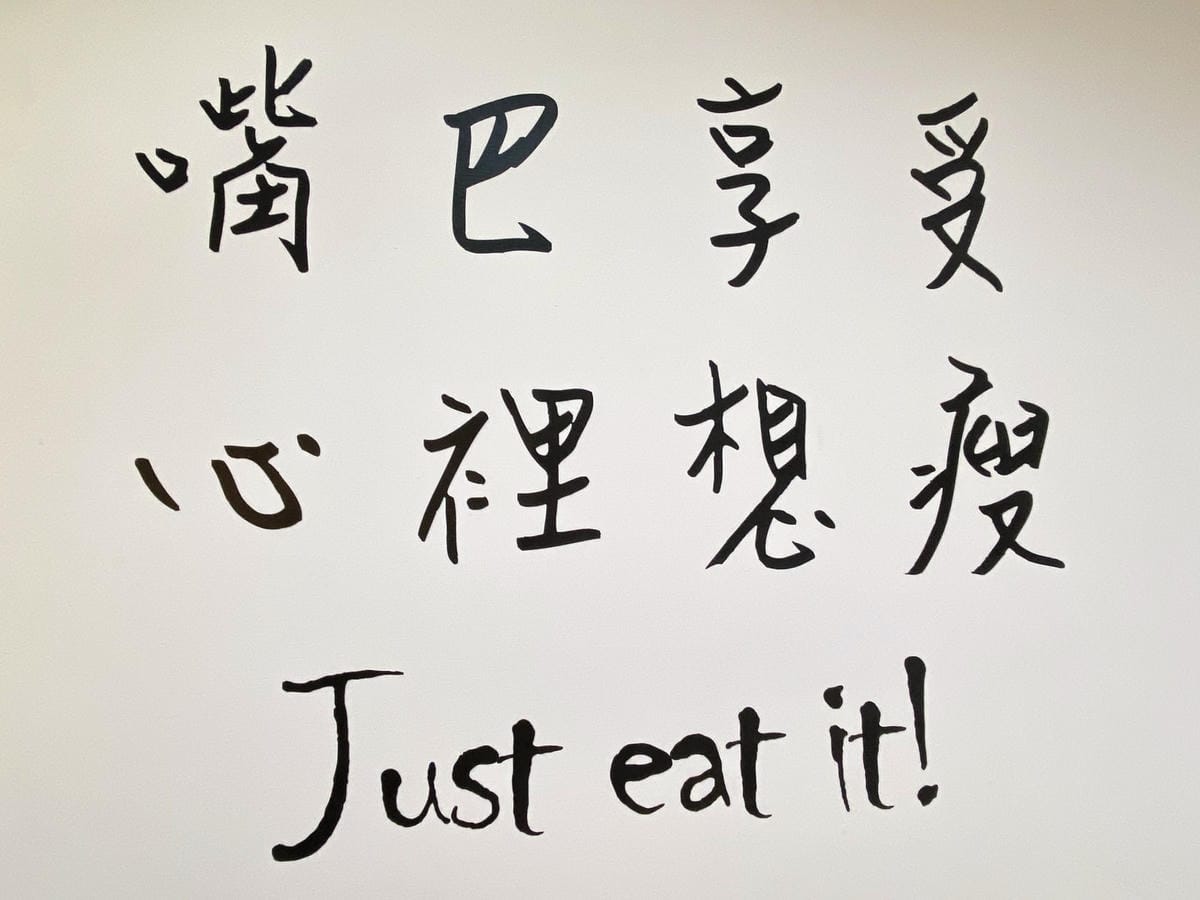 嘴巴享受
心裡想瘦
Just eat it!